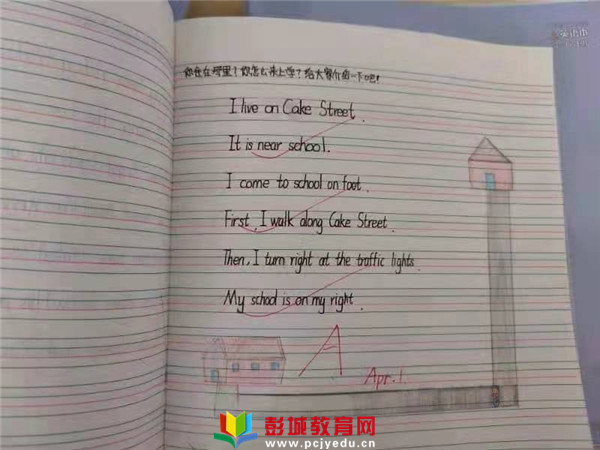 你住在哪里？你怎么来上学？给大家介绍一下吧！
I live on Cake Street.
It is near school.
I come to school on foot.
First, I walk along Cake Street.
Then, I turn right at the traffic lights.
My school is on my right.
A
Apr. 1.
彭城教育网
www.pcjyedu.cn